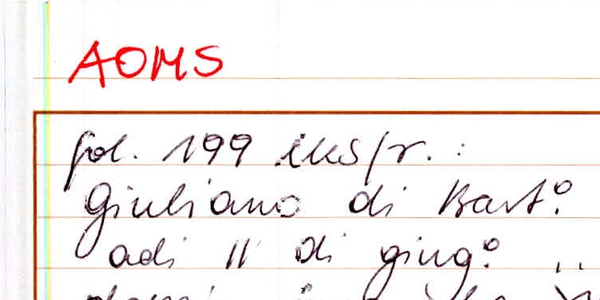 AOMS
fol. 199 ins/r. :
Giuliano di Bart.º
adi 11 di giug.º